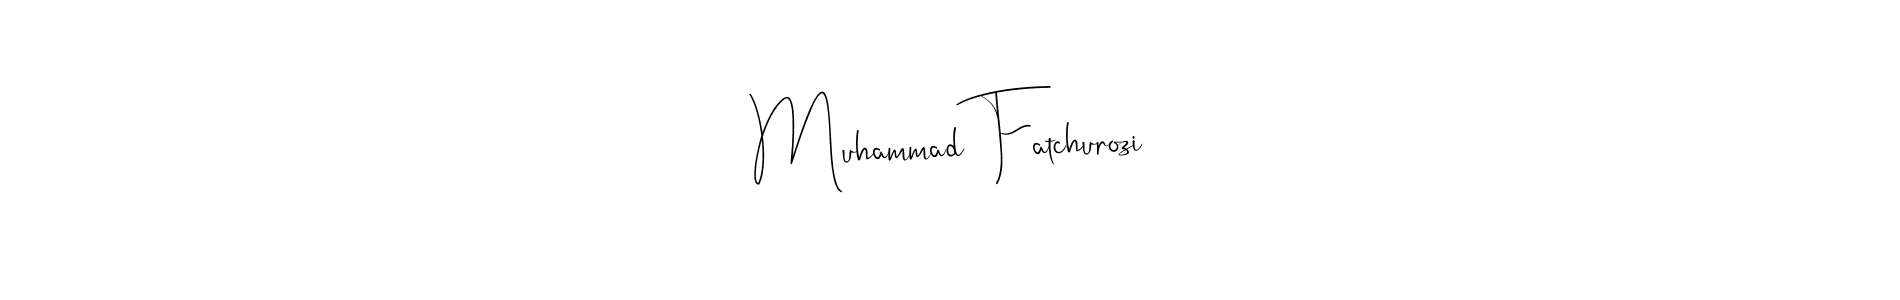 Muhammad Fatchurozi